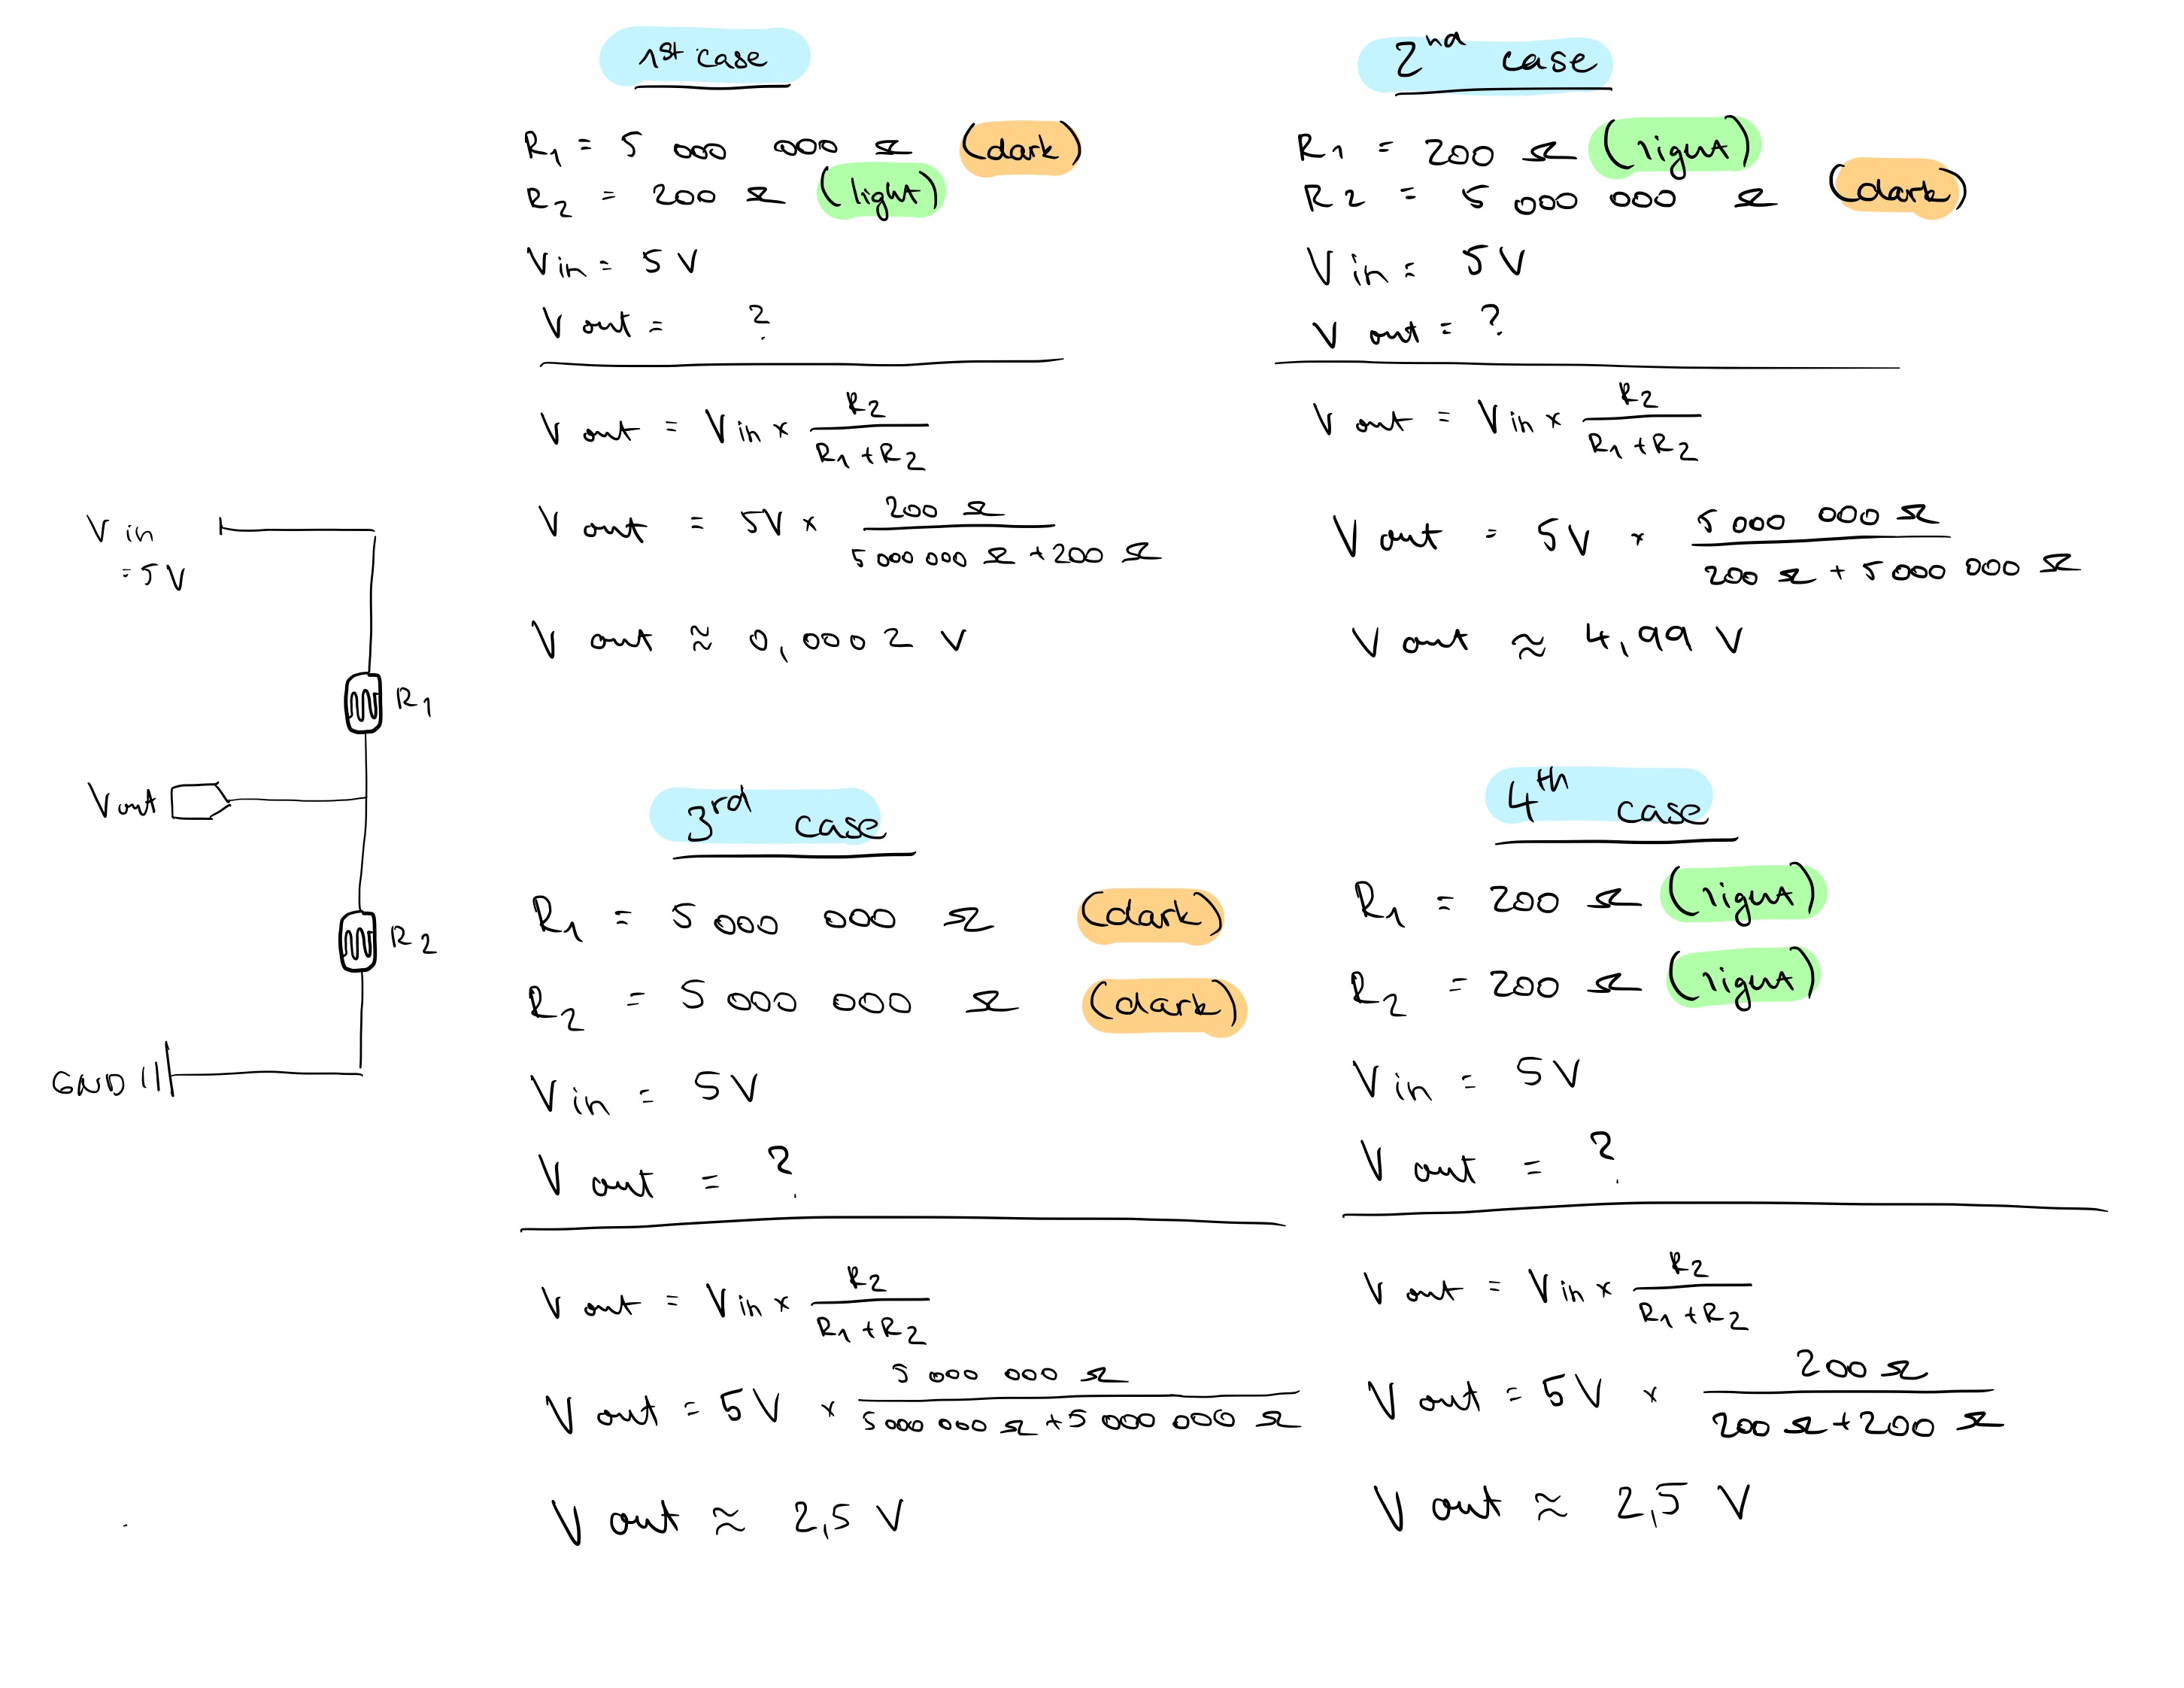 1st case
R1 = 5 000 000 Ω (dark)
R2 = 200 Ω (light)
Vin = 5 V
Vout = ?
Vout = Vin × R2 / R1 + R2
Vout = 5V × 200 Ω / 5 000 000 Ω + 200 Ω
Vout ≈ 0,0002 V
2nd case
R1 = 200 Ω (light)
R2 = 5 000 000 Ω (dark)
Vin = 5V
Vout = ?
Vout = Vin × R2 / R1 + R2
Vout = 5V × 5 000 000 Ω / 200 Ω + 5 000 000 Ω
Vout ≈ 4,99 V
Vin
= 5 V
R1
Vout
R2
GND
3rd case
R1 = 5 000 000 Ω (dark)
R2 = 5 000 000 Ω (dark)
Vin = 5 V
Vout = ?
Vout = Vin × R2 / R1 + R2
Vout = 5V × 5 000 000 Ω / 5 000 000 Ω + 5 000 000 Ω
Vout ≈ 2,5 V
4th case
R1 = 200 Ω (light)
R2 = 200 Ω (light)
Vin = 5V
Vout = ?
Vout = Vin × R2 / R1 + R2
Vout = 5V × 200 Ω / 200 Ω + 200 Ω
Vout ≈ 2,5 V